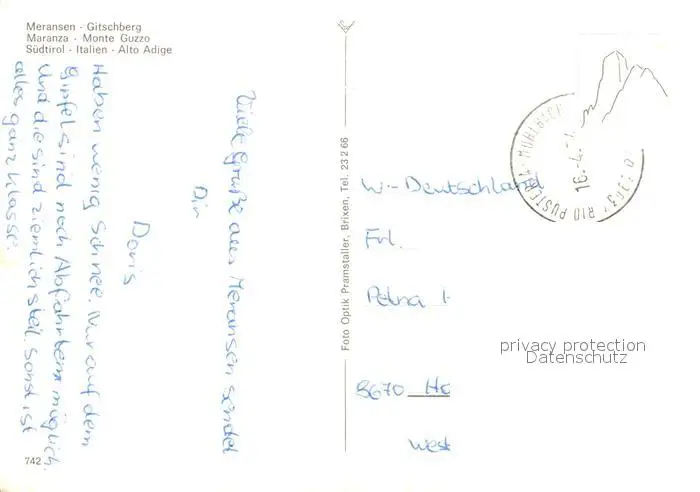 Meransen - Gitschberg
Maranza - Monte Guzzo
Südtirol - Italien - Alto Adige
Viele Grüße aus Meransen sendet
Dir
Doris
Haben wenig Schnee. Nur auf dem
Gipfel sind noch Abfahrten möglich.
Und die sind ziemlich steil. Sonst ist
alles ganz klasse.
742
Foto Optik Pramstaller, Brixen, Tel. 23266
RIO PUSTERIA
16.-4.-
W-Deutschland
Frl.
Petra
8670 Ho
West
privacy protection
Datenschutz